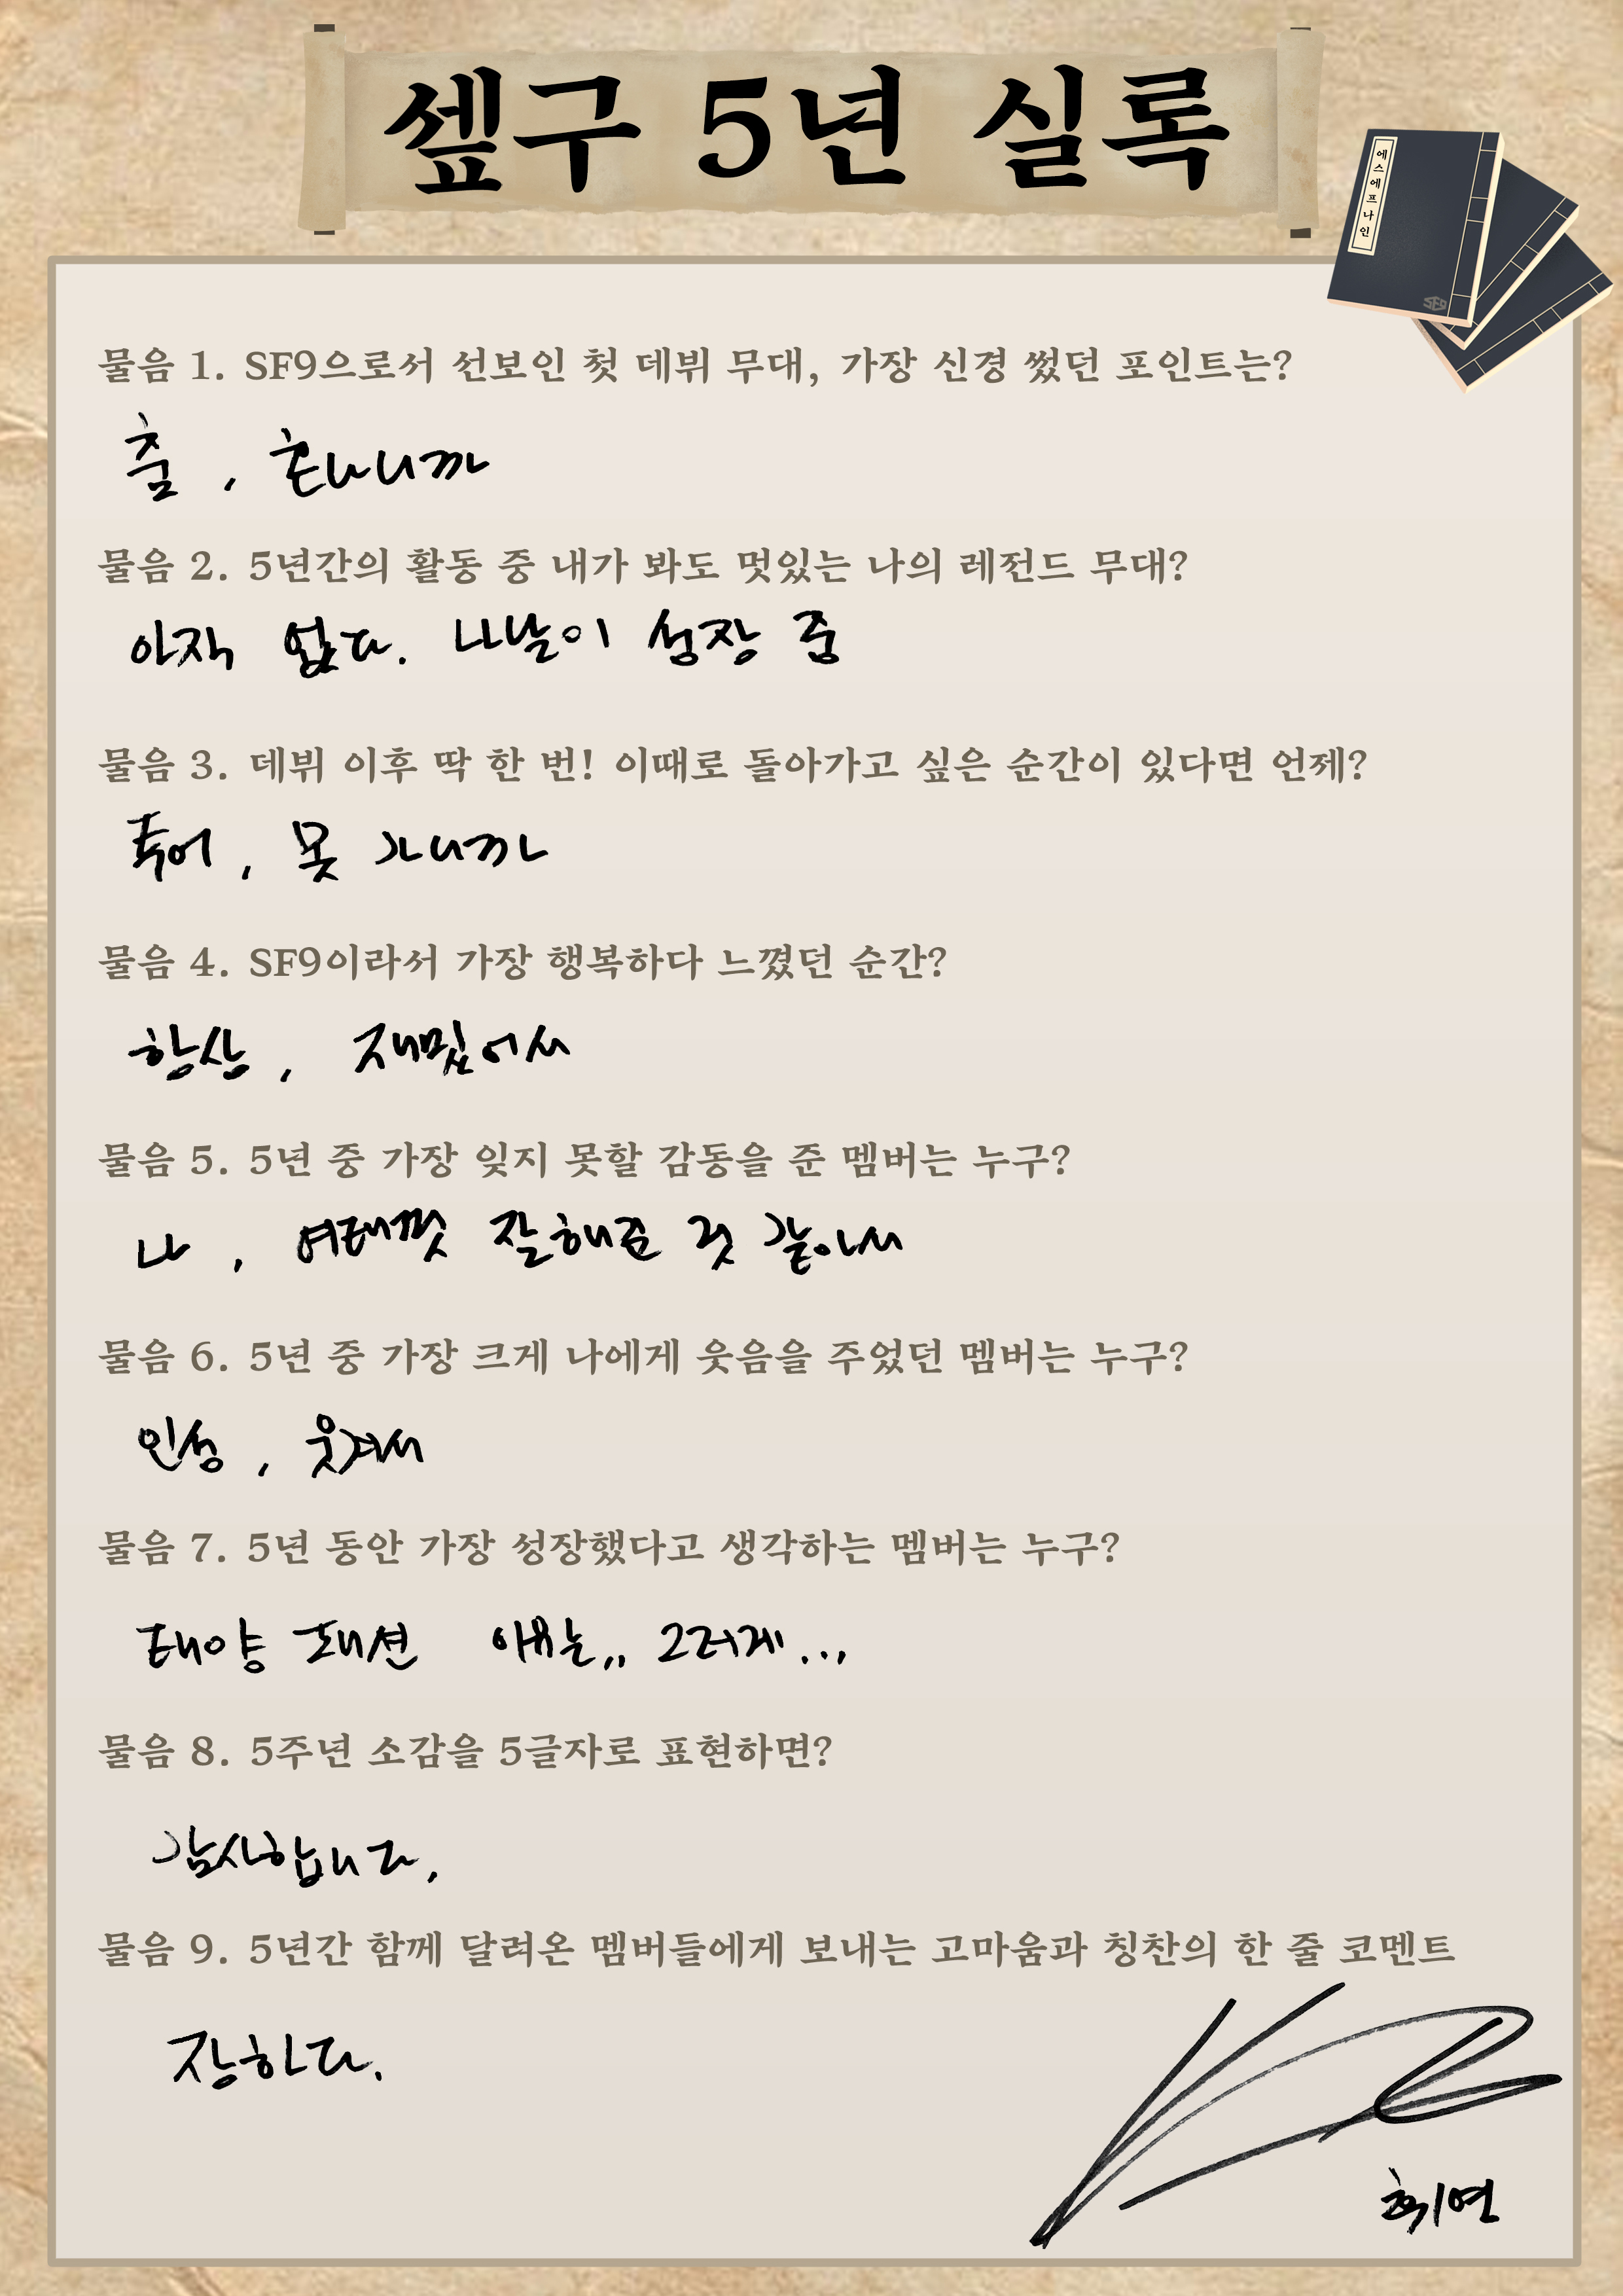 셒구 5년 실록
에스에프나인
SF9
물음 1. SF9으로서 선보인 첫 데뷔 무대, 가장 신경 썼던 포인트는?
춤, 혼나니까
물음 2. 5년간의 활동 중 내가 봐도 멋있는 나의 레전드 무대?
아직 없다. 나날이 성장 중
물음 3. 데뷔 이후 딱 한 번! 이때로 돌아가고 싶은 순간이 있다면 언제?
투어, 못 가니까
물음 4. SF9이라서 가장 행복하다 느꼈던 순간?
항상, 재밌어서
물음 5. 5년 중 가장 잊지 못할 감동을 준 멤버는 누구?
나, 여태껏 잘해준 것 같아서
물음 6. 5년 중 가장 크게 나에게 웃음을 주었던 멤버는 누구?
인성, 웃겨서
물음 7. 5년 동안 가장 성장했다고 생각하는 멤버는 누구?
태양 패션 이유는,, 그러게...
물음 8. 5주년 소감을 5글자로 표현하면?
감사합니다.
물음 9. 5년간 함께 달려온 멤버들에게 보내는 고마움과 칭찬의 한 줄 코멘트
장하다.
휘연